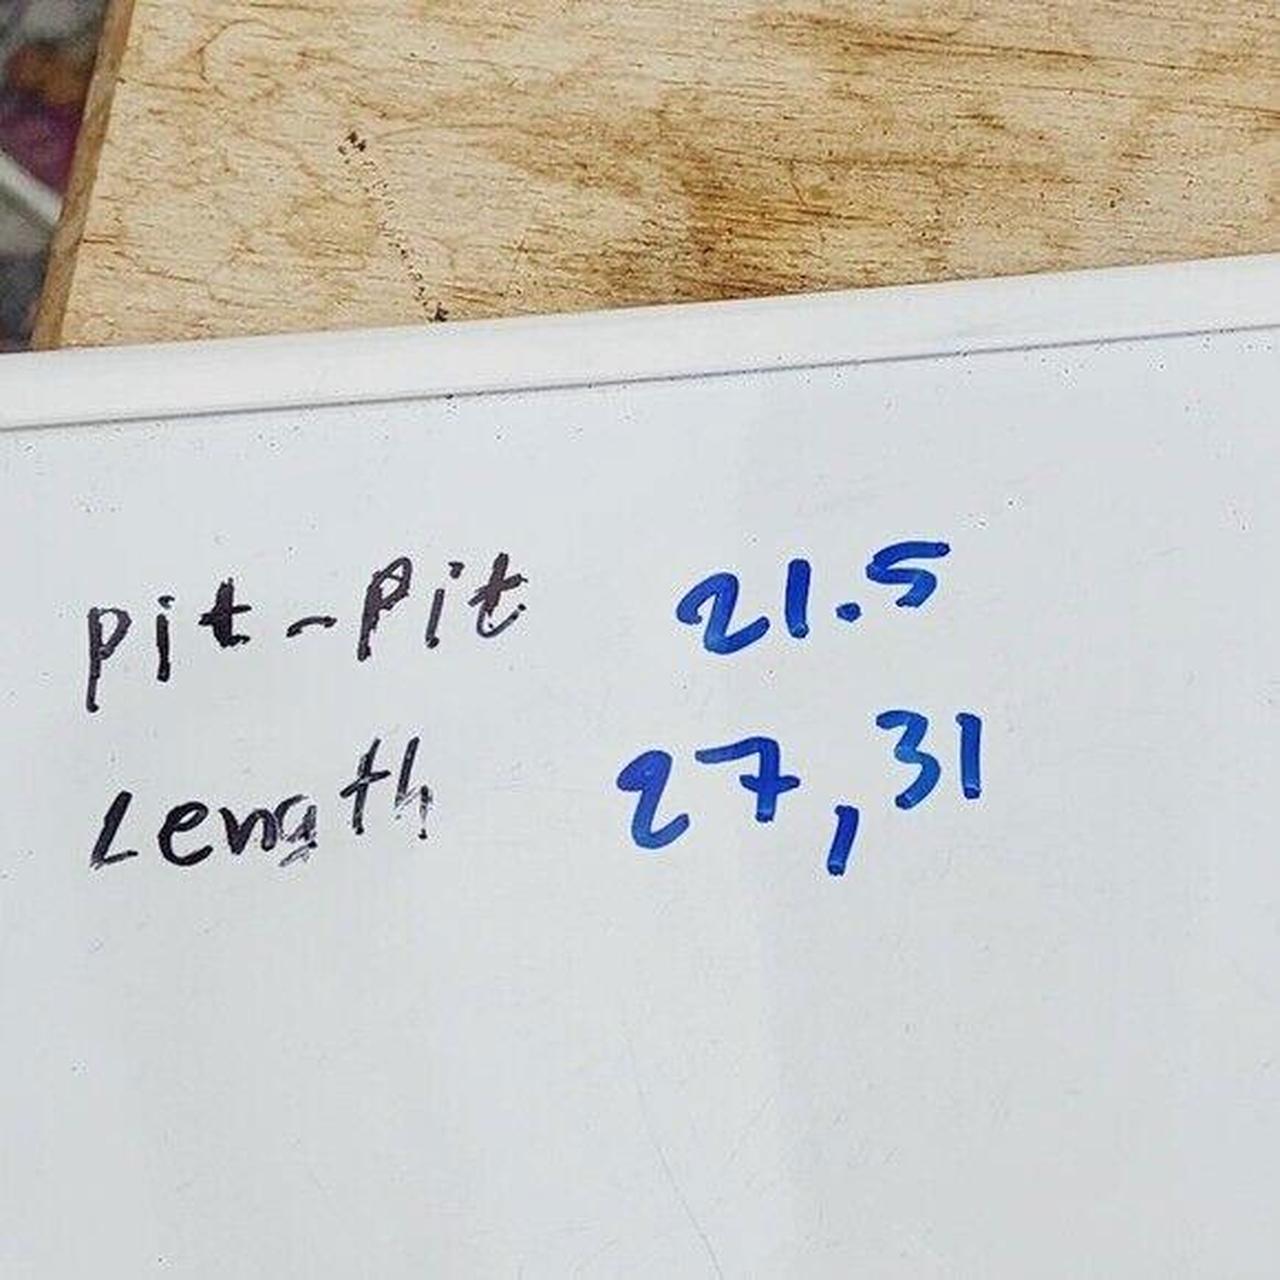 Pit-Pit 21.5
Length 27,31